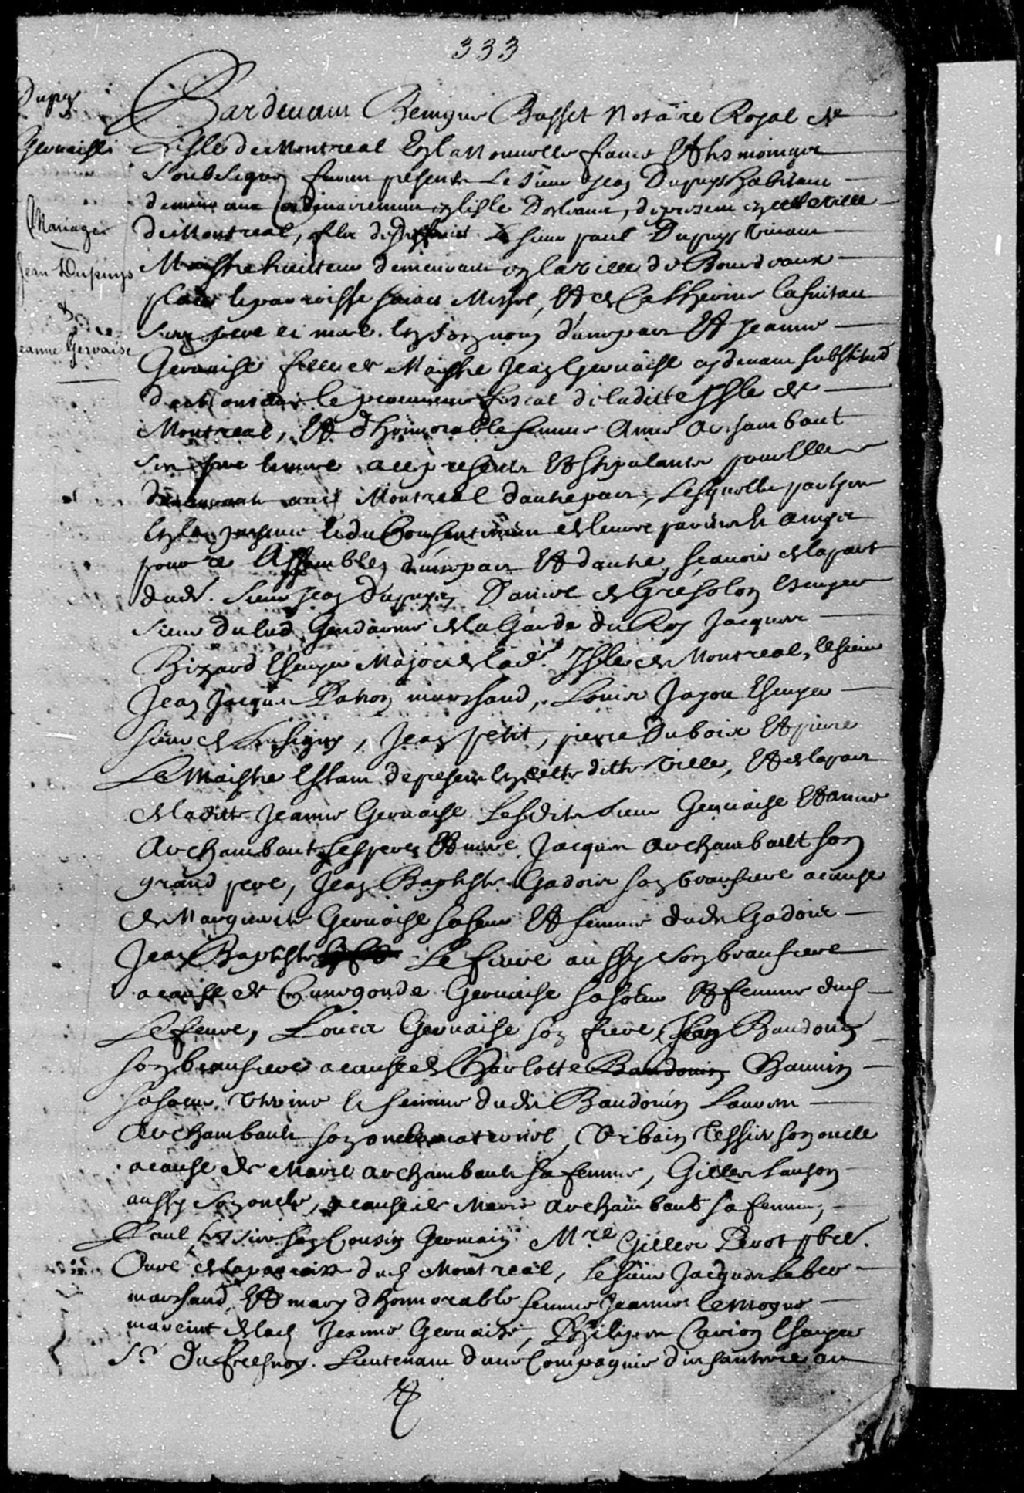 333
Dupuy
Gervaise
Mariage
Jean Dupuys
&
Jeanne Gervaise
Pardevant Benigne Basset Notaire Royal de
Lisle de Montreal En la Nouvelle france Et tesmoings
Soubsignez furent presents Le Sieur Jean Dupuys habitant
demeurant ordinairement en lisle Dorleans, de present en cette ville
de Montreal, filz de Sieur paul Dupuys vivant
Maistre demeurant en la ville de Bourdeaux
paroisse sainct Michel, Et de Catherine
Ses pere et mere. En son nom d'une part Et Jeanne
Gervaise fille de Maistre Jean Gervaise cy devant substitud
de le procureur fiscal de laditte Isle de
Montreal, Et d'honnorable femme Anne Archambault
sa femme a ce presents Et stipulants pour Elle
demeurants audit Montreal d'autre part, Lesquelles parties
En la presence et du Consentement de leurs parents Et amys
pour ce Assemblez d'une part Et d'autre, sçavoir de la part
dudt. Sieur Jean dupuys Daniel de Gresolon Escuyer
Sieur Dulud Gendarme de la Garde du Roy Jacques
Bizard Escuyer Major de lad. Isle de Montreal, le sieur
Jean Jacques Patron marchand, Louis Escuyer
sieur de Lusigny, Jean petit, pierre Duboix Et pierre
Le Maistre Estant de present En cette ditte ville, Et de la part
de laditte Jeanne Gervaise Lesdits Sieur Gervaise Et anne
Archambault ses pere Et mere, Jacques archambault son
grand pere, Jean Baptiste Gadois son beaufrere a cause
de Marguerite Gervaise sa soeur Et femme dudt Gadois
Jean Baptiste Le febvre aussy son beaufrere
a cause de Cunegonde Gervaise sa soeur Et femme dud.
Lefevre, Louis Gervaise son frere, Jean Baudouin
son beaufrere a cause de Charlotte Baudouin Chauvin
sa soeur Uterine et femme dudt Baudouin Laurent
Archambault son oncle maternel, Urbain Tessier son oncle
a cause de Marie archambault sa femme, Gilles Lauson
aussy son oncle, a cause de Marie archambault sa femme,
Paul son Cousin Germain Mre Gilles Perot pbre.
Curé de la paroisse dud. Montreal, le sieur Jacques Leber
marchand, Et mary d'honnorable femme Jeanne lemoyne
mareine de lad. Jeanne Gervaise, Philippes Carion Escuyer
Sr. Dufresnoy. Lieutenant d'une Compagnie d'infanterie au